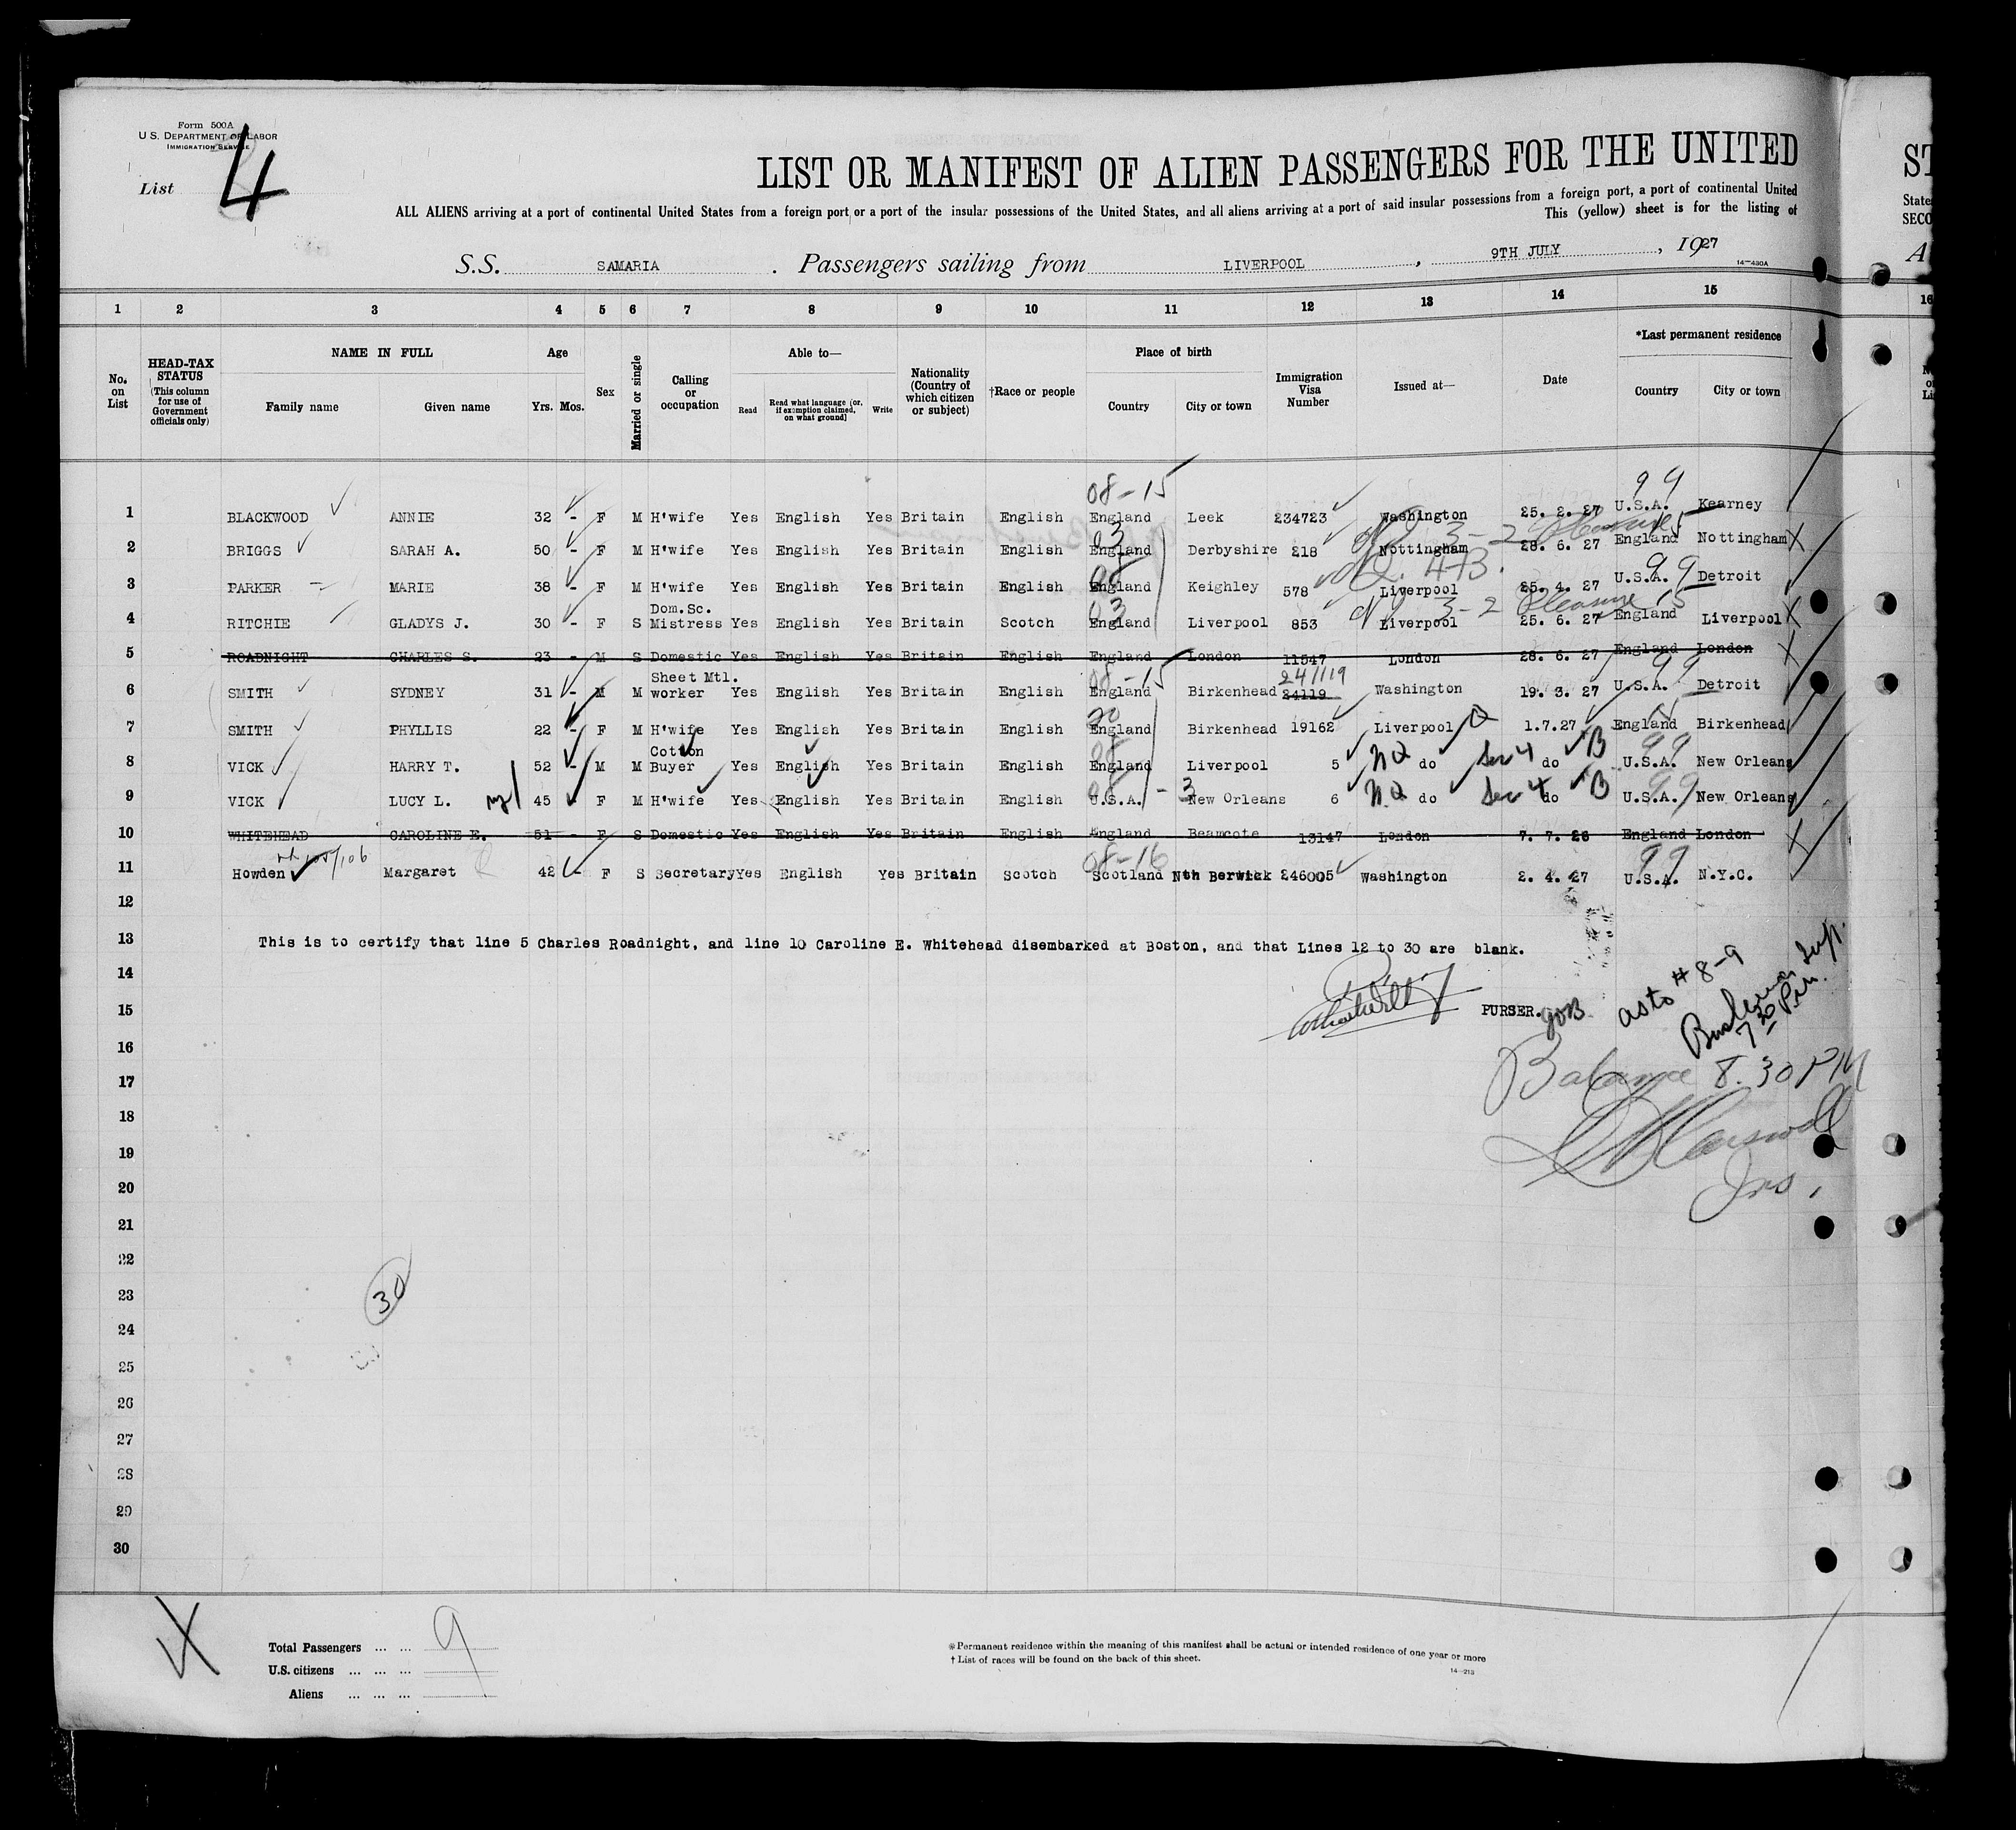 Form 500A
U.S. DEPARTMENT OF LABOR
IMMIGRATION SERVICE
List 4
LIST OR MANIFEST OF ALIEN PASSENGERS FOR THE UNITED ST
ALL ALIENS arriving at a port of continental United States from a foreign port or a port of the insular possessions of the United States, and all aliens arriving at a port of said insular possessions from a foreign port, a port of continental United State
This (yellow) sheet is for the listing of SECO
S.S. SAMARIA . Passengers sailing from LIVERPOOL , 9TH JULY , 1927 A
14—430A
1 2 3 4 5 6 7 8 9 10 11 12 13 14 15 16
No. on List
HEAD-TAX STATUS (This column for use of Government officials only)
NAME IN FULL Family name Given name
Age Yrs. Mos.
Sex
Married or single
Calling or occupation
Able to— Read Read what language (or, if exemption claimed, on what ground) Write
Nationality (Country of which citizen or subject)
†Race or people
Place of birth Country City or town
Immigration Visa Number
Issued at—
Date
*Last permanent residence Country City or town
08-15 99
1 BLACKWOOD ANNIE 32 - F M H'wife Yes English Yes Britain English England Leek 234723 Washington 25. 2. 27 U.S.A. Kearney
03 3-2 Pleasure 15
2 BRIGGS SARAH A. 50 - F M H'wife Yes English Yes Britain English England Derbyshire 218 Nottingham 28. 6. 27 England Nottingham X
08 Q. 4-B. 99
3 PARKER MARIE 38 - F M H'wife Yes English Yes Britain English England Keighley 578 Liverpool 25. 4. 27 U.S.A. Detroit
03 3-2 Pleasure 15
4 RITCHIE GLADYS J. 30 - F S Dom.Sc. Mistress Yes English Yes Britain Scotch England Liverpool 853 Liverpool 25. 6. 27 England Liverpool X
5 ROADNIGHT CHARLES S. 23 - M S Domestic Yes English Yes Britain English England London 11547 London 28. 6. 27 England London X
08-15 241119 99
6 SMITH SYDNEY 31 - M M Sheet Mtl. worker Yes English Yes Britain English England Birkenhead 24119 Washington 19. 3. 27 U.S.A. Detroit
20 Q 15
7 SMITH PHYLLIS 22 - F M H'wife Yes English Yes Britain English England Birkenhead 19162 Liverpool 1.7.27 England Birkenhead
08 99
8 VICK HARRY T. 52 - M M Cotton Buyer Yes English Yes Britain English England Liverpool 5 NQ do Sec 4 do B U.S.A. New Orleans
08 - 3 99
9 VICK LUCY L. 45 - F M H'wife Yes English Yes Britain English U.S.A. New Orleans 6 NQ do Sec 4 do B U.S.A. New Orleans
10 WHITEHEAD CAROLINE E. 51 - F S Domestic Yes English Yes Britain English England Beamcote 13147 London 7. 7. 26 England London X
105/106 08-16 99
11 Howden Margaret 42 - F S Secretary Yes English Yes Britain Scotch Scotland Nth Berwick 246005 Washington 2. 4. 27 U.S.A. N.Y.C.
12
13 This is to certify that line 5 Charles Roadnight, and line 10 Caroline E. Whitehead disembarked at Boston, and that Lines 12 to 30 are blank.
14
as to # 8-9
15 PURSER.
7 30 P.m.
16
17 Balance 8.30 PM
18
19
Ins.
20
21
22
23 30
24
25
26
27
28
29
30
Total Passengers ... ... 9
U.S. citizens ... ... ...
Aliens ... ... ...
*Permanent residence within the meaning of this manifest shall be actual or intended residence of one year or more
† List of races will be found on the back of this sheet.
14—213